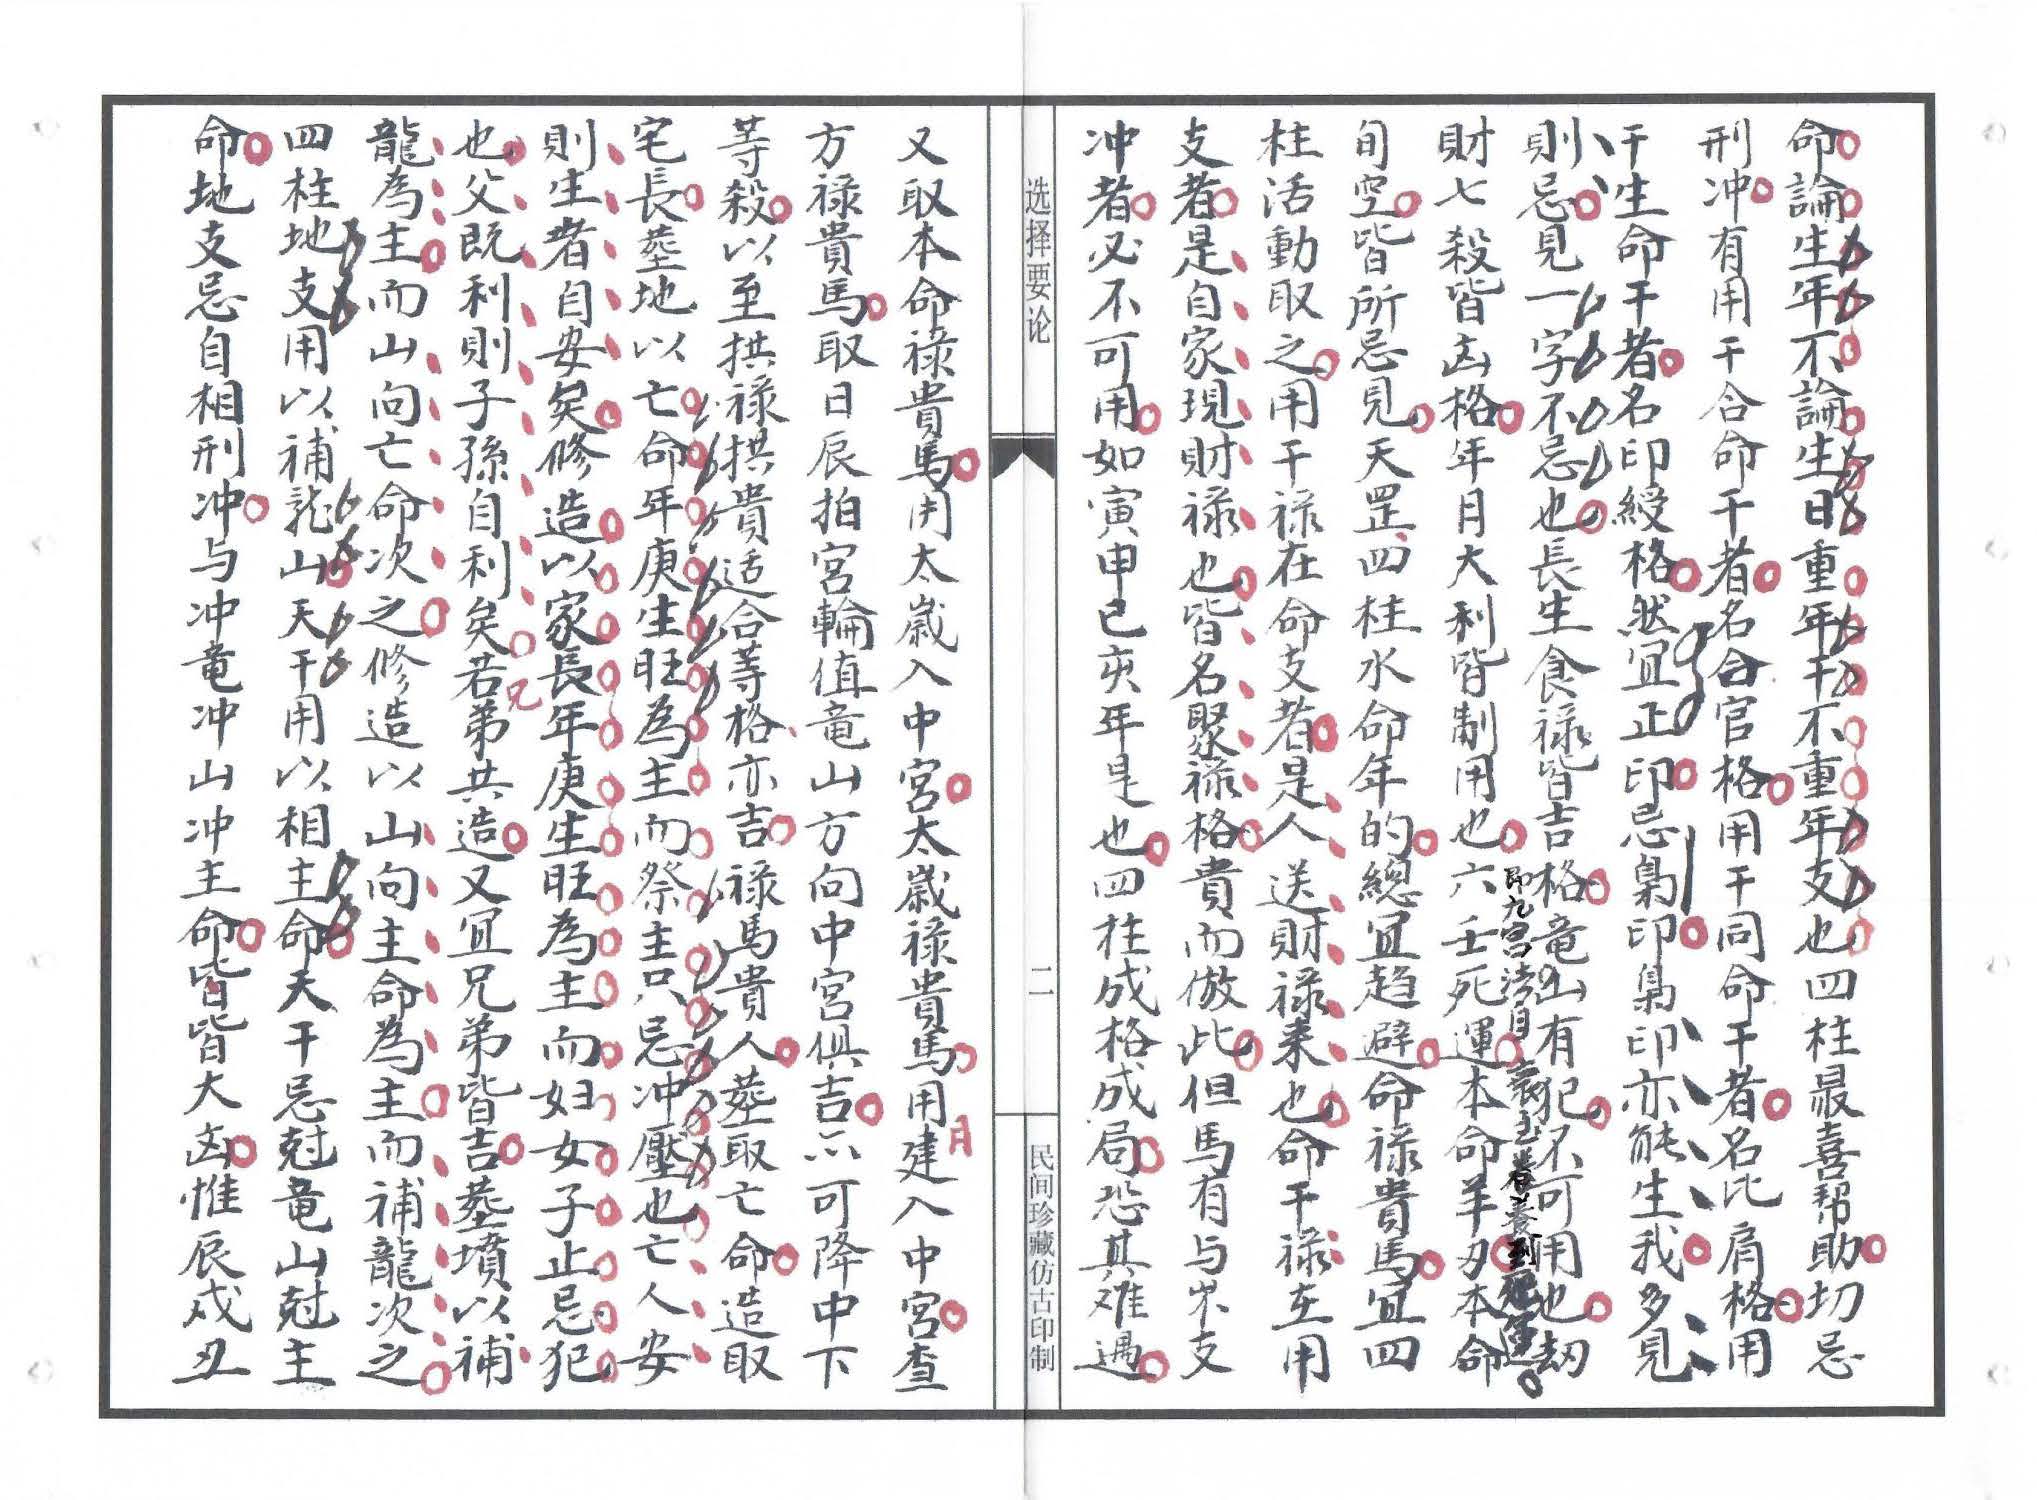 命論生年不論生日重年干不重年支也四柱最喜帮助切忌
刑冲有用干合命干者名合官格用干同命干者名比肩格用
干生命干者名印綬格然宜正印忌梟印梟印亦能生我多見
則忌見一字不忌也長生食禄皆吉格竜山有犯不可用也劫
即九宫
財七殺皆凶格年月大利皆制用也六壬死運本命羊刃本命
旬空皆所忌見天罡四柱水命年的總宜趋避命禄貴馬宜四
柱活動取之用干禄在命支者是人送財禄来也命干禄在用
支者是自家現財禄也皆名聚禄格貴而倣此但馬有与岁支
冲者必不可用如寅申巳亥年是也四柱成格成局恐其难遇
选择要论
二
民间珍藏仿古印制
又取本命禄貴馬用太歲入中宮太歲禄貴馬用月建入中宮查
方禄貴馬取日辰拍宮輪值竜山方向中宮俱吉亦可降中下
等殺以至拱禄拱貴适合等格亦吉禄馬貴人塟取亡命造取
宅長塟地以亡命年庚生旺為主而祭主只忌冲壓也亡人安
則生者自安矣修造以家長年庚生旺為主而妇女子止忌犯
也父既利則子孫自利矣若兄弟共造又宜兄弟皆吉塟墳以補
龍為主而山向亡命次之修造以山向主命為主而補龍次之
四柱地支用以補龍山天干用以相主命天干忌尅竜山尅主
命地支忌自相刑冲与冲竜冲山冲主命皆皆大凶惟辰戍丑